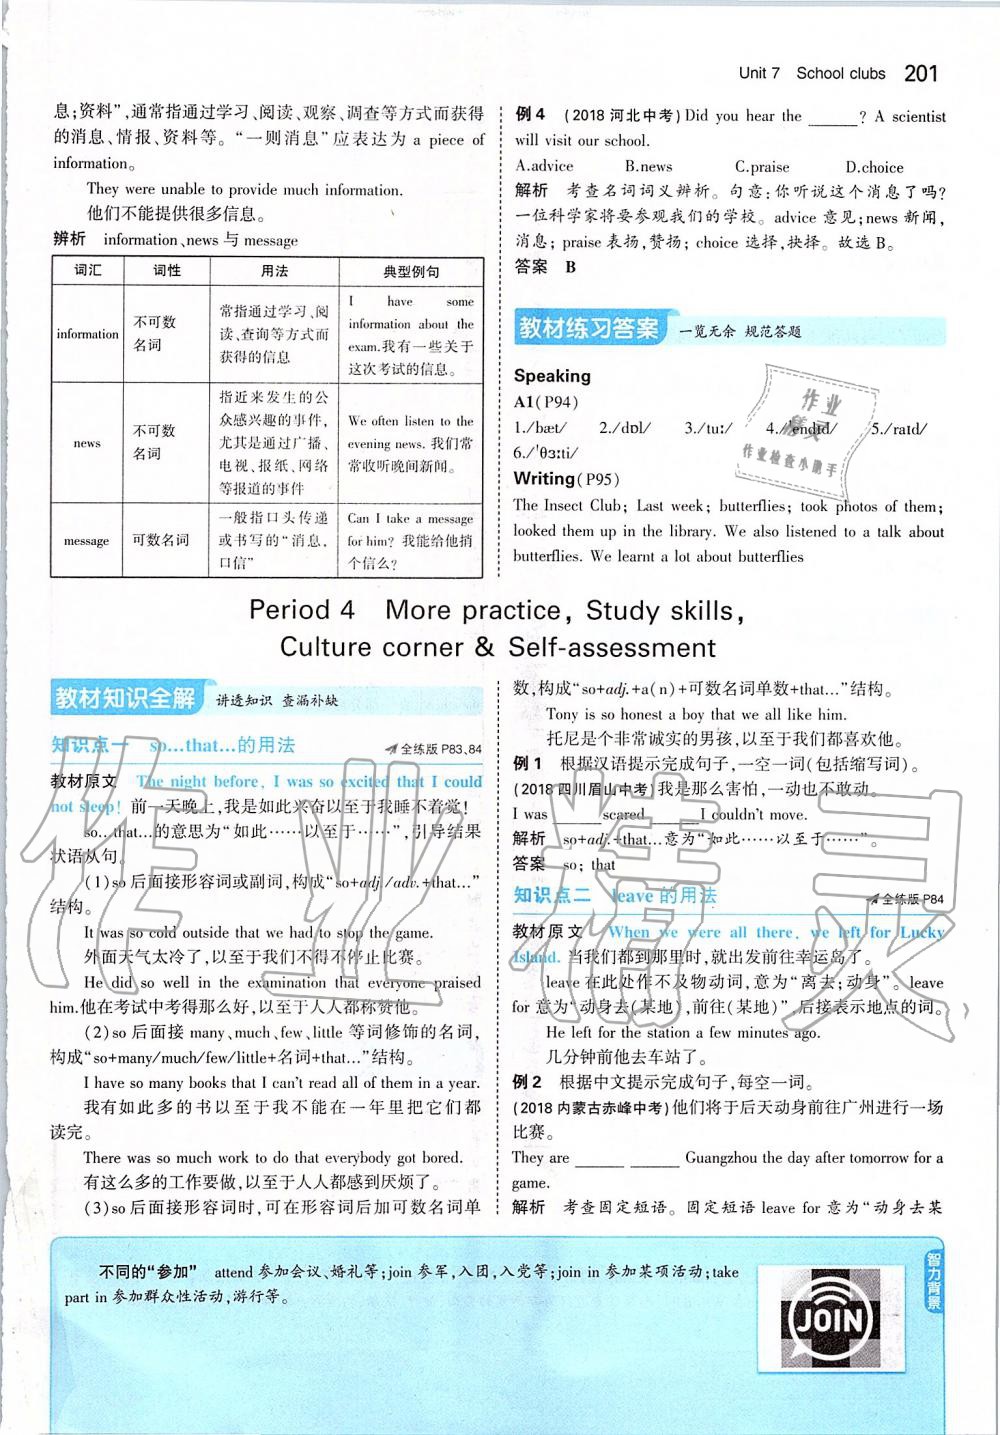 Unit 7 School clubs 201
息;资料”,通常指通过学习、阅读、观察、调查等方式而获得
的消息、情报、资料等。“一则消息”应表达为 a piece of
information。
They were unable to provide much information.
他们不能提供很多信息。
辨析 information、news 与 message
词汇 词性 用法 典型例句
information 不可数名词 常指通过学习、阅读、查询等方式而获得的信息 I have some information about the exam.我有一些关于这次考试的信息。
news 不可数名词 指近来发生的公众感兴趣的事件,尤其是通过广播、电视、报纸、网络等报道的事件 We often listen to the evening news. 我们常常收听晚间新闻。
message 可数名词 一般指口头传递或书写的“消息,口信” Can I take a message for him? 我能给他捎个信么?
例 4 (2018 河北中考) Did you hear the ______? A scientist
will visit our school.
A.advice B.news C.praise D.choice
解析 考查名词词义辨析。句意:你听说这个消息了吗?
一位科学家将要参观我们的学校。advice 意见;news 新闻,
消息; praise 表扬,赞扬; choice 选择,抉择。故选 B。
答案 B
教材练习答案 一览无余 规范答题
Speaking
A1(P94)
1./bæt/ 2./dɒl/ 3./tuː/ 4./ˈendɪd/ 5./raɪd/
6./ˈθɜːti/
Writing(P95)
The Insect Club; Last week; butterflies; took photos of them;
looked them up in the library. We also listened to a talk about
butterflies. We learnt a lot about butterflies
作业
精灵
作业检查小助手
Period 4 More practice, Study skills,
Culture corner & Self-assessment
教材知识全解 讲透知识 查漏补缺
知识点一 so…that…的用法 全练版 P83、84
教材原文 The night before, I was so excited that I could
not sleep! 前一天晚上,我是如此兴奋以至于我睡不着觉!
so…that…的意思为“如此……以至于……”,引导结果
状语从句。
(1)so 后面接形容词或副词,构成“so+adj./adv.+that…”
结构。
It was so cold outside that we had to stop the game.
外面天气太冷了,以至于我们不得不停止比赛。
He did so well in the examination that everyone praised
him.他在考试中考得那么好,以至于人人都称赞他。
(2)so 后面接 many、much、few、little 等词修饰的名词,
构成“so+many/much/few/little+名词+that…”结构。
I have so many books that I can't read all of them in a year.
我有如此多的书以至于我不能在一年里把它们都
读完。
There was so much work to do that everybody got bored.
有这么多的工作要做,以至于人人都感到厌烦了。
(3)so 后面接形容词时,可在形容词后加可数名词单
数,构成“so+adj.+a(n)+可数名词单数+that…”结构。
Tony is so honest a boy that we all like him.
托尼是个非常诚实的男孩,以至于我们都喜欢他。
例 1 根据汉语提示完成句子,一空一词(包括缩写词)。
(2018 四川眉山中考)我是那么害怕,一动也不敢动。
I was ______ scared ______ I couldn't move.
解析 so+adj.+that…意为“如此……以至于……”。
答案 so; that
知识点二 leave 的用法 全练版 P84
教材原文 When we were all there, we left for Lucky
Island. 当我们都到那里时,就出发前往幸运岛了。
leave 在此处作不及物动词,意为“离去;动身”。leave
for 意为“动身去(某地),前往(某地)”,后接表示地点的词。
He left for the station a few minutes ago.
几分钟前他去车站了。
例 2 根据中文提示完成句子,每空一词。
(2018 内蒙古赤峰中考)他们将于后天动身前往广州进行一场
比赛。
They are ______ ______ Guangzhou the day after tomorrow for a
game.
解析 考查固定短语。固定短语 leave for 意为“动身去某
作业精灵
不同的“参加” attend 参加会议、婚礼等;join 参军,入团,入党等;join in 参加某项活动;take
part in 参加群众性活动,游行等。
JOIN
智力背景